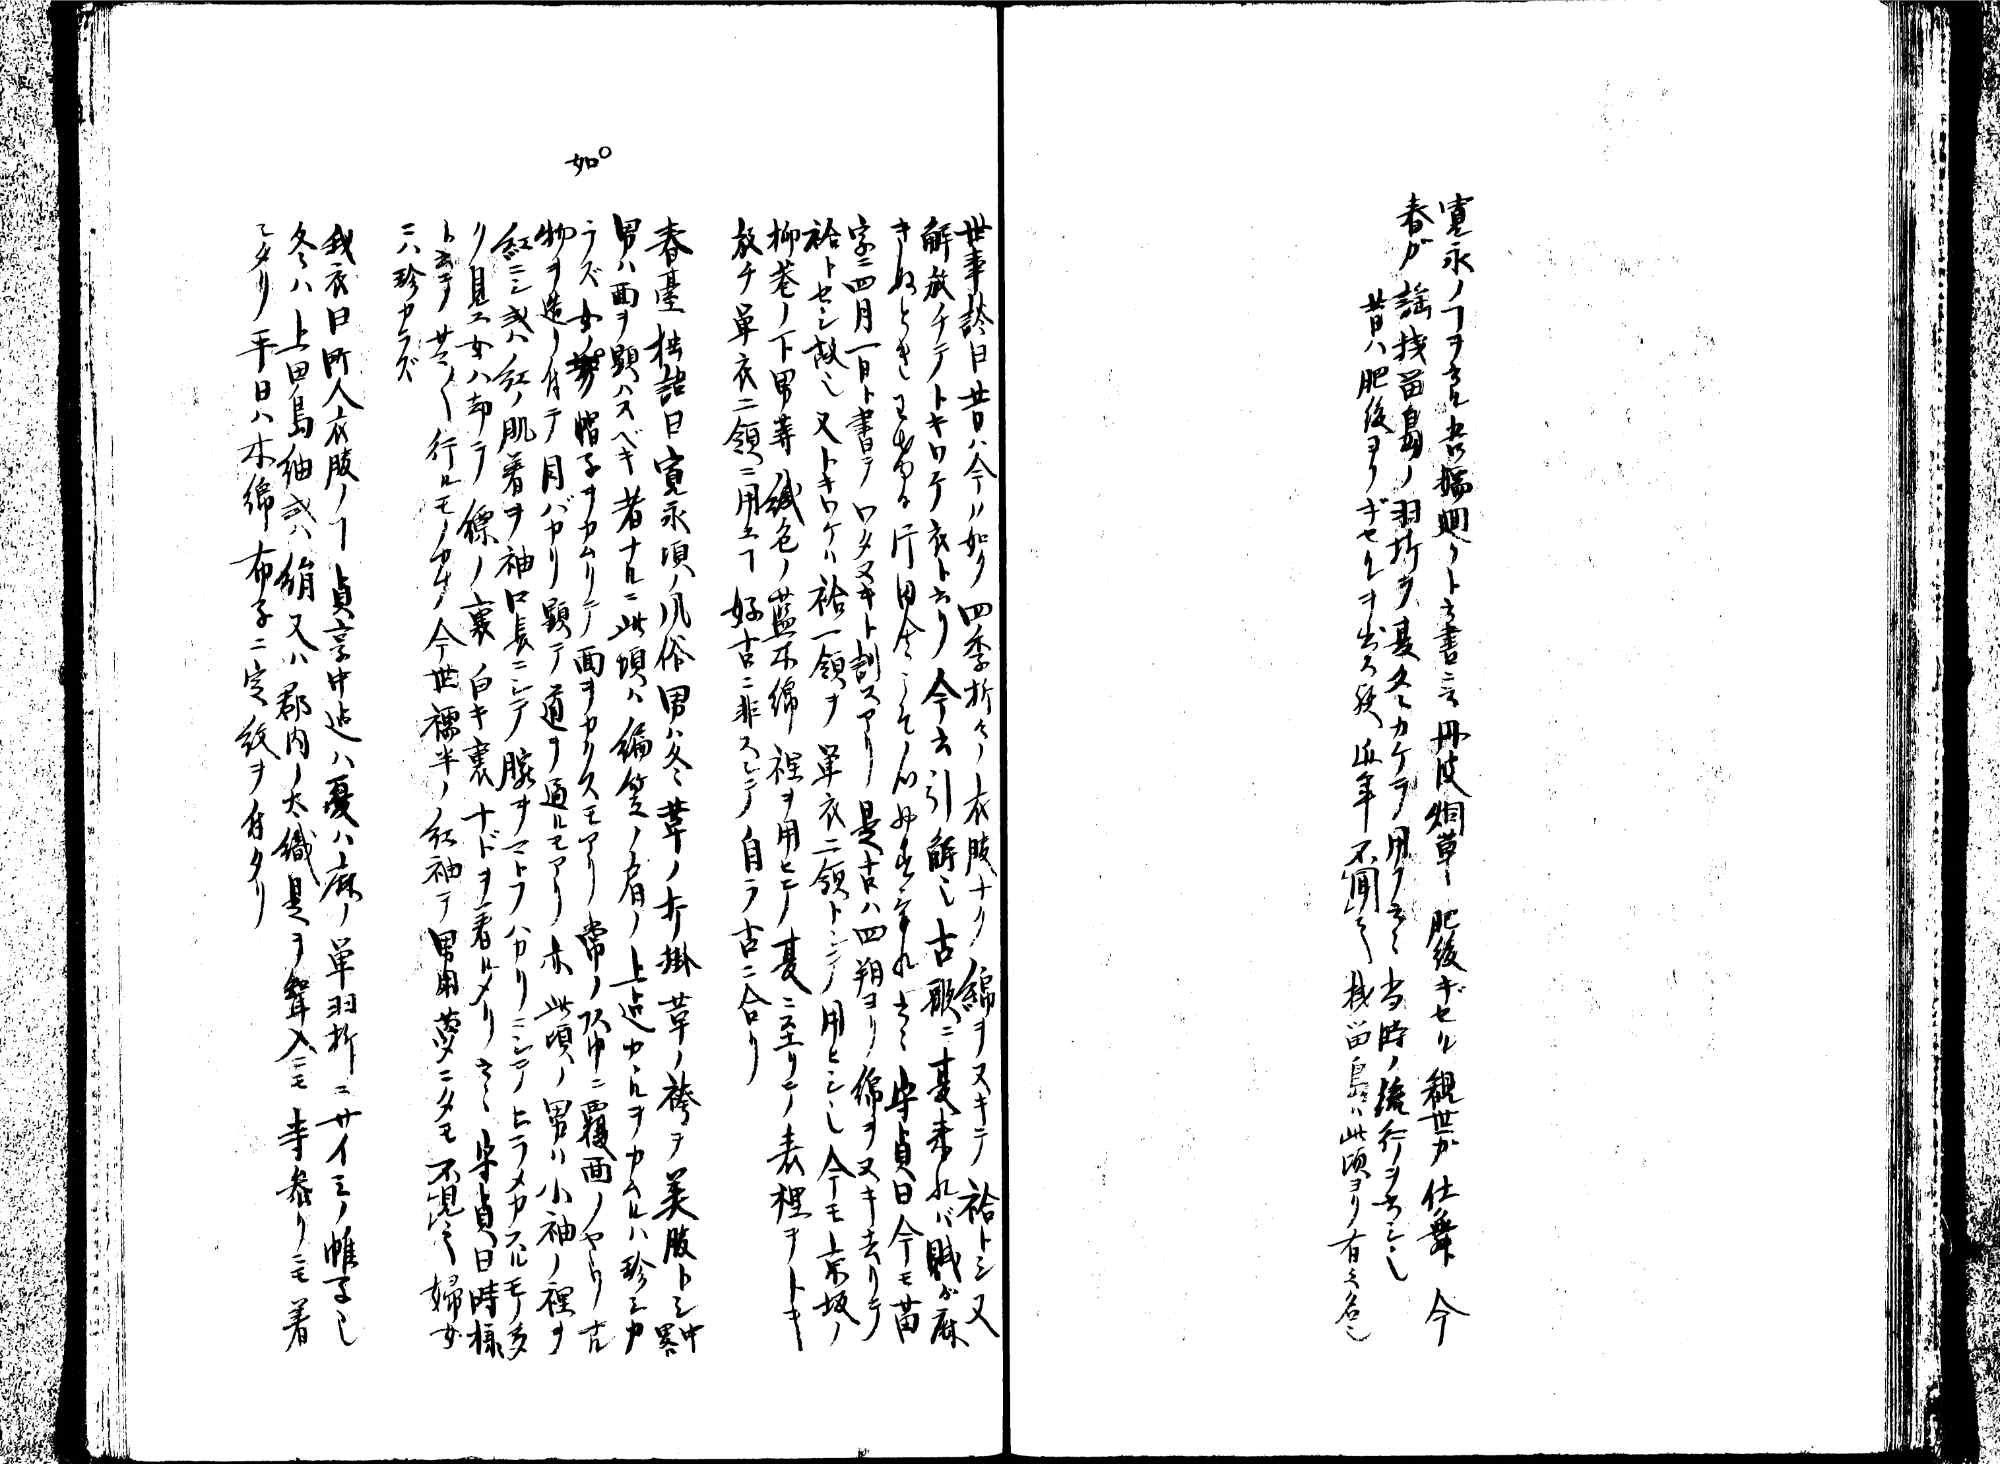 寛永ノヿヲ云ル書ニ云丹波烟草肥後ギセル観世ガ仕舞今
春ガ謡桟留島ノ羽折ヲ夏冬カケテ用フ云々当時ノ流行ヲ云シ也
昔ハ肥後ヨリギセルヲ出ス歟近年不聞之桟留島ハ此頃ヨリ有之名也
世事談曰昔ハ今ノ如ク四季折々ノ衣服ナク綿ヲヌキテ袷トシ又
解放チテトキワケ衣ト云リ今云引解也古歌ニ夏来れバ賎が麻
きぬときわける片田舎こそ心安けれ云々守貞曰今モ苗
字ニ四月一日ト書テワタヌキト訓スアリ是古ハ四朔ヨリ綿ヲヌキ去リテ
袷トセシ故也又トキワケハ袷一領ヲ単衣二領トシテ用ヒシ也今モ京坂ノ
柳巷ノ下男等ハ織色ノ藍木綿裡ヲ用ヒテ夏ニ至リテ表裡ヲトキ
放チ単衣二領ニ用フ好古ニ非ズシテ自ラ古ニ合リ
春臺独語曰寛永頃ノ風俗男ハ冬革ノ羽折掛革ノ袴ヲ美服トシ中畧
男ハ面ヲ顕ハスベキ者ナルニ此頃ハ編笠ノ肩ノ上迄カヽルヲカムルハ珍シカ
ラズ女ノ如°帽子ヲカムリテ面ヲカクスモアリ常ノ頭巾ニ覆面ノヤウナル
物ヲ造リ付テ目バカリ顕テ道ヲ通ルモアリ亦此頃ノ男ハ小袖ノ裡ヲ
紅ニシ或ハ紅ノ肌着ヲ袖口長ニシテ腕ヲマトフバカリニシテヒラメカスルモノ多
リ見エ女ハ却テ縹ノ裏白キ裏ナドヲ着ルメリ云々守貞曰時様
行ルモノカナ今世襦半ノ紅袖テ男用夢ニダモ不見之婦女
ニハ珍カラズ
我衣曰町人衣服ノヿ貞享中迄ハ夏ハ麻ノ単羽折ニサイミノ帷子也
冬ハ上田島紬或ハ絹又ハ郡内ノ太織是ヲ聟入ニモ寺参リニモ着
シタリ平日ハ木綿布子ニ定紋ヲ付タリ